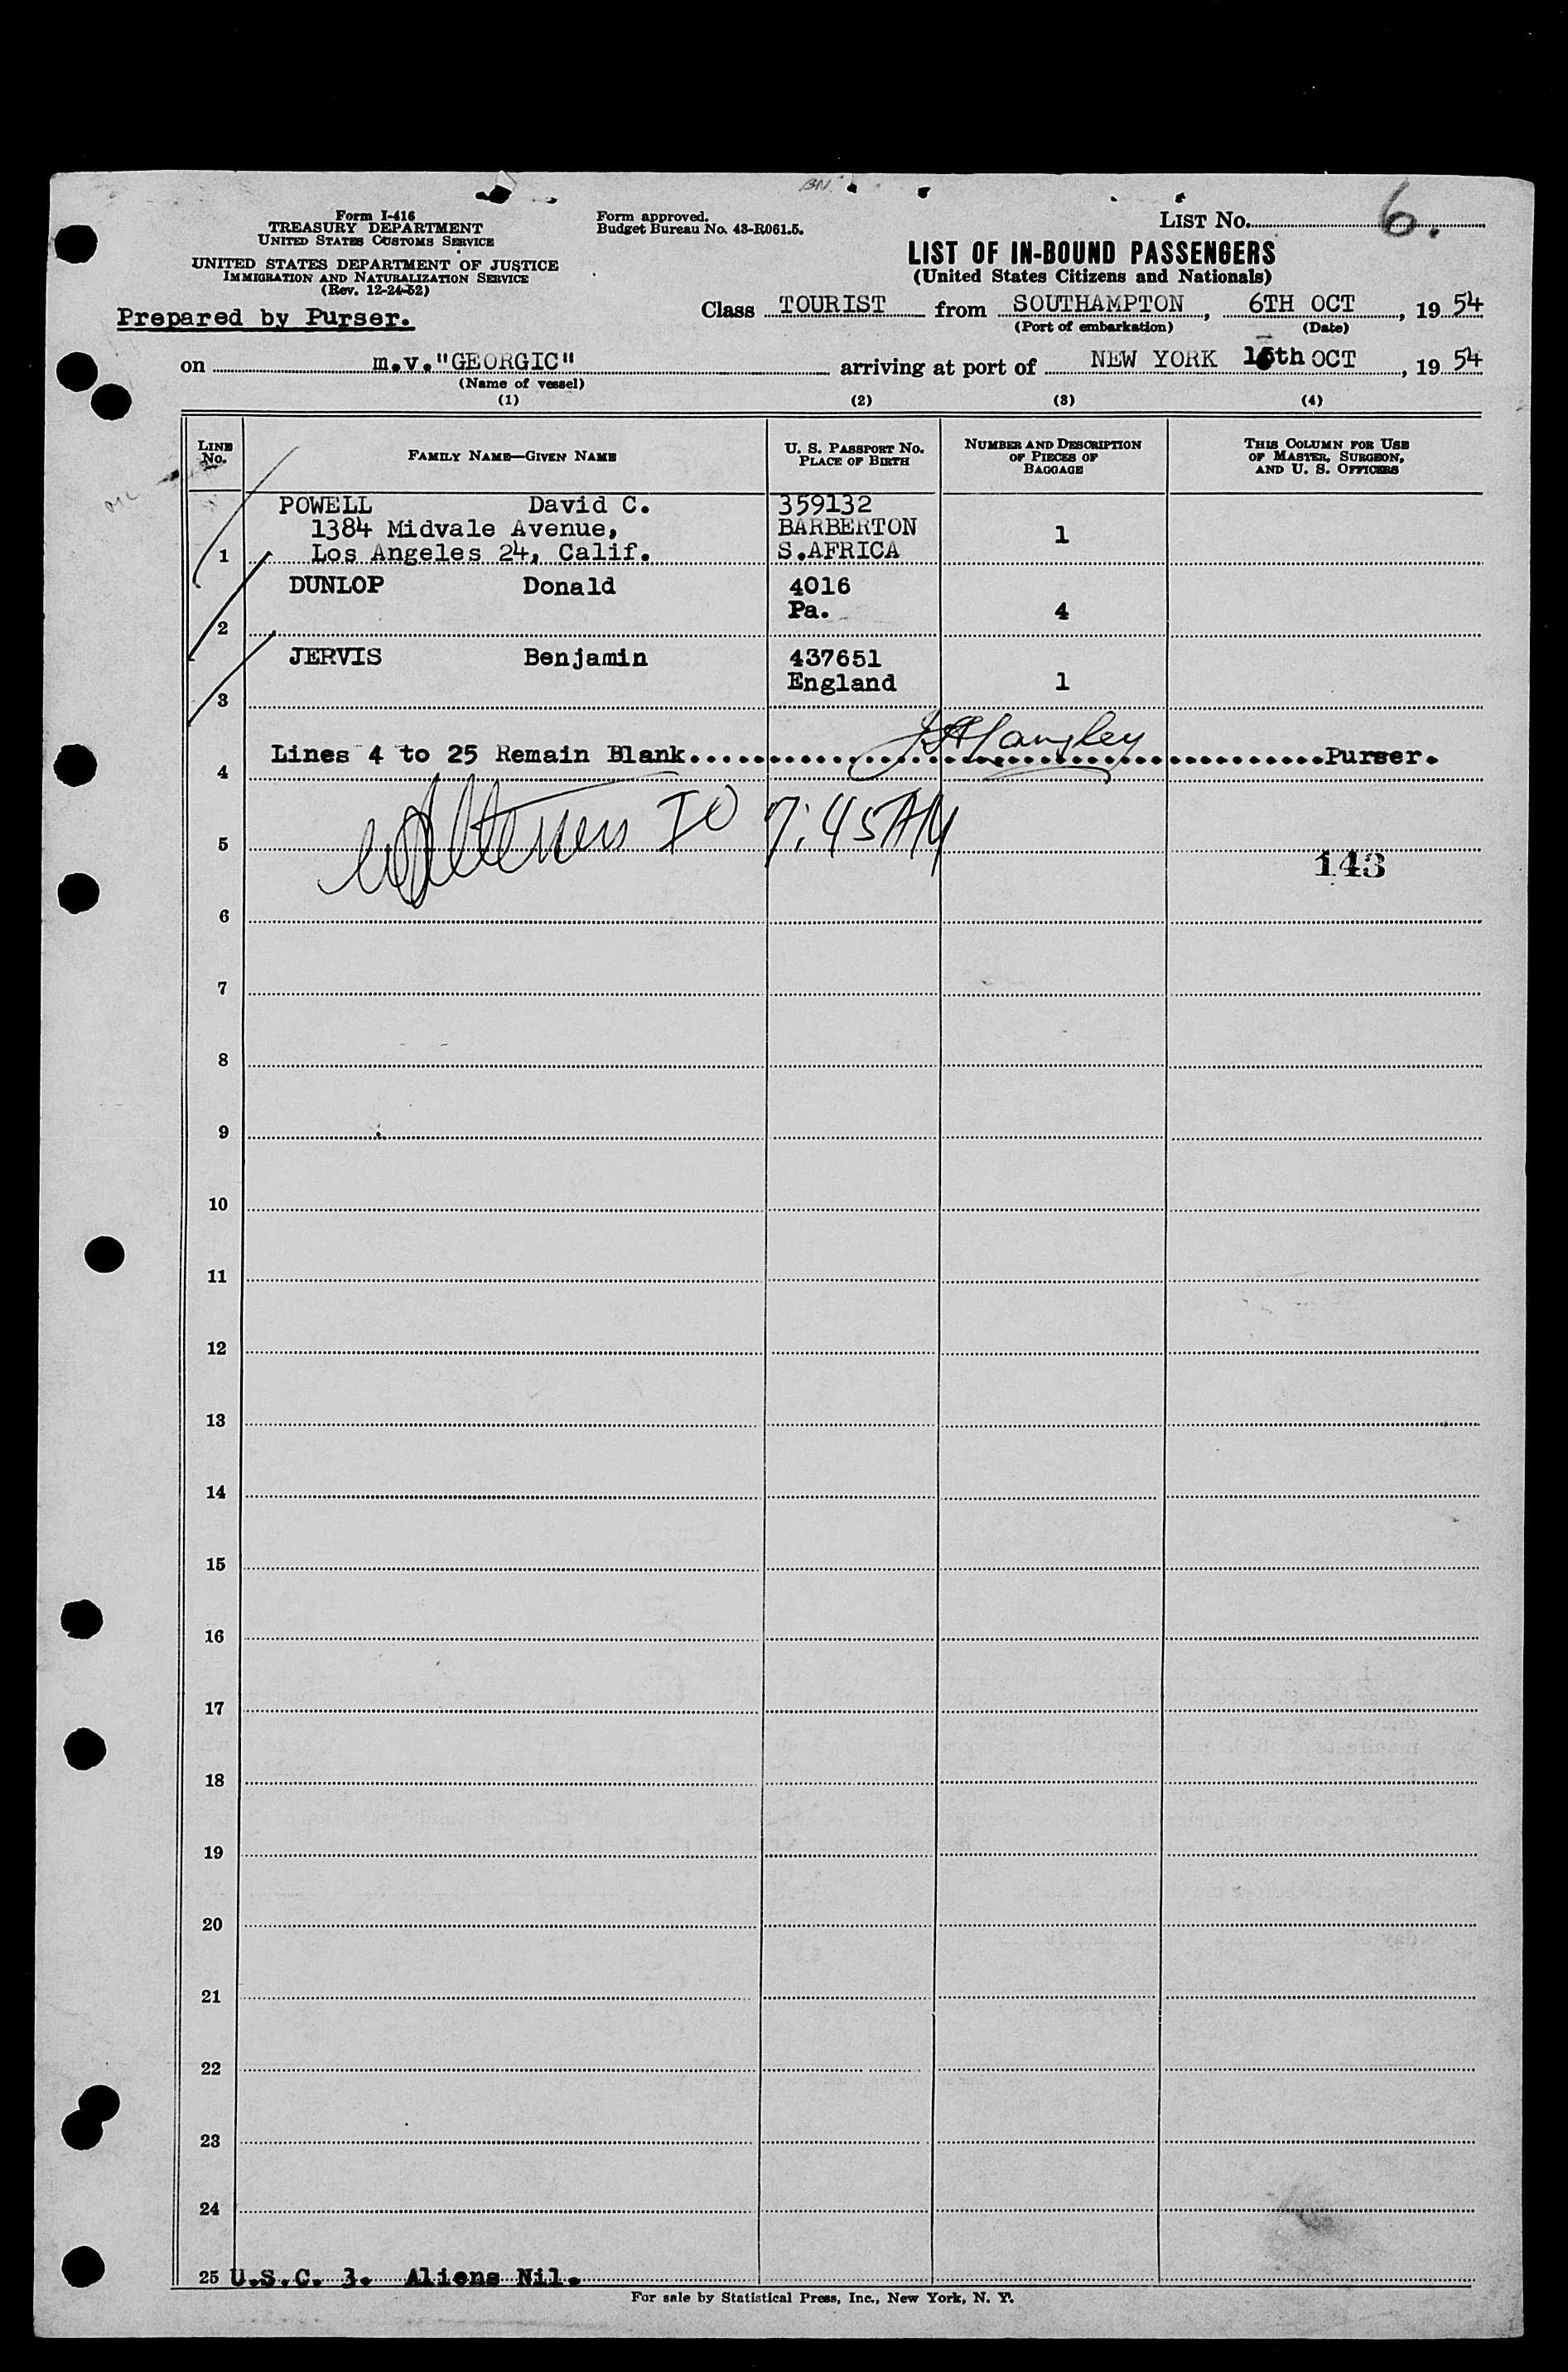 Form I-416
TREASURY DEPARTMENT
UNITED STATES CUSTOMS SERVICE
UNITED STATES DEPARTMENT OF JUSTICE
IMMIGRATION AND NATURALIZATION SERVICE
(Rev. 12-24-52)
Prepared by Purser.
Form approved.
Budget Bureau No. 43-R061.5.
LIST No. 6.
LIST OF IN-BOUND PASSENGERS
(United States Citizens and Nationals)
Class TOURIST from SOUTHAMPTON, 6TH OCT, 19 54
(Port of embarkation) (Date)
on m.v."GEORGIC" arriving at port of NEW YORK OCT, 19 54
(Name of vessel)
(1) (2) (3) (4)
LINE No. FAMILY NAME—GIVEN NAME U. S. PASSPORT NO. PLACE OF BIRTH NUMBER AND DESCRIPTION OF PIECES OF BAGGAGE THIS COLUMN FOR USE OF MASTER, SURGEON, AND U. S. OFFICERS
POWELL David C. 359132
1384 Midvale Avenue, BARBERTON 1
1 Los Angeles 24, Calif. S.AFRICA
DUNLOP Donald 4016
Pa. 4
2
JERVIS Benjamin 437651
England 1
3
Lines 4 to 25 Remain Blank Langley Purser.
4
7:45 AM
5
143
6
7
8
9
10
11
12
13
14
15
16
17
18
19
20
21
22
23
24
25 U.S.C. 3. Aliens Nil.
For sale by Statistical Press, Inc., New York, N. Y.